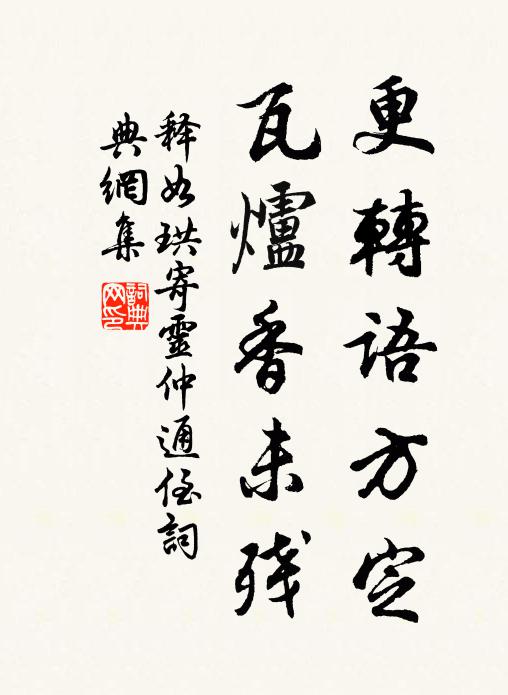 更轉語方定
瓦爐香未殘
释如珙寄靈仲通侄詞
典網集
詞典
网印